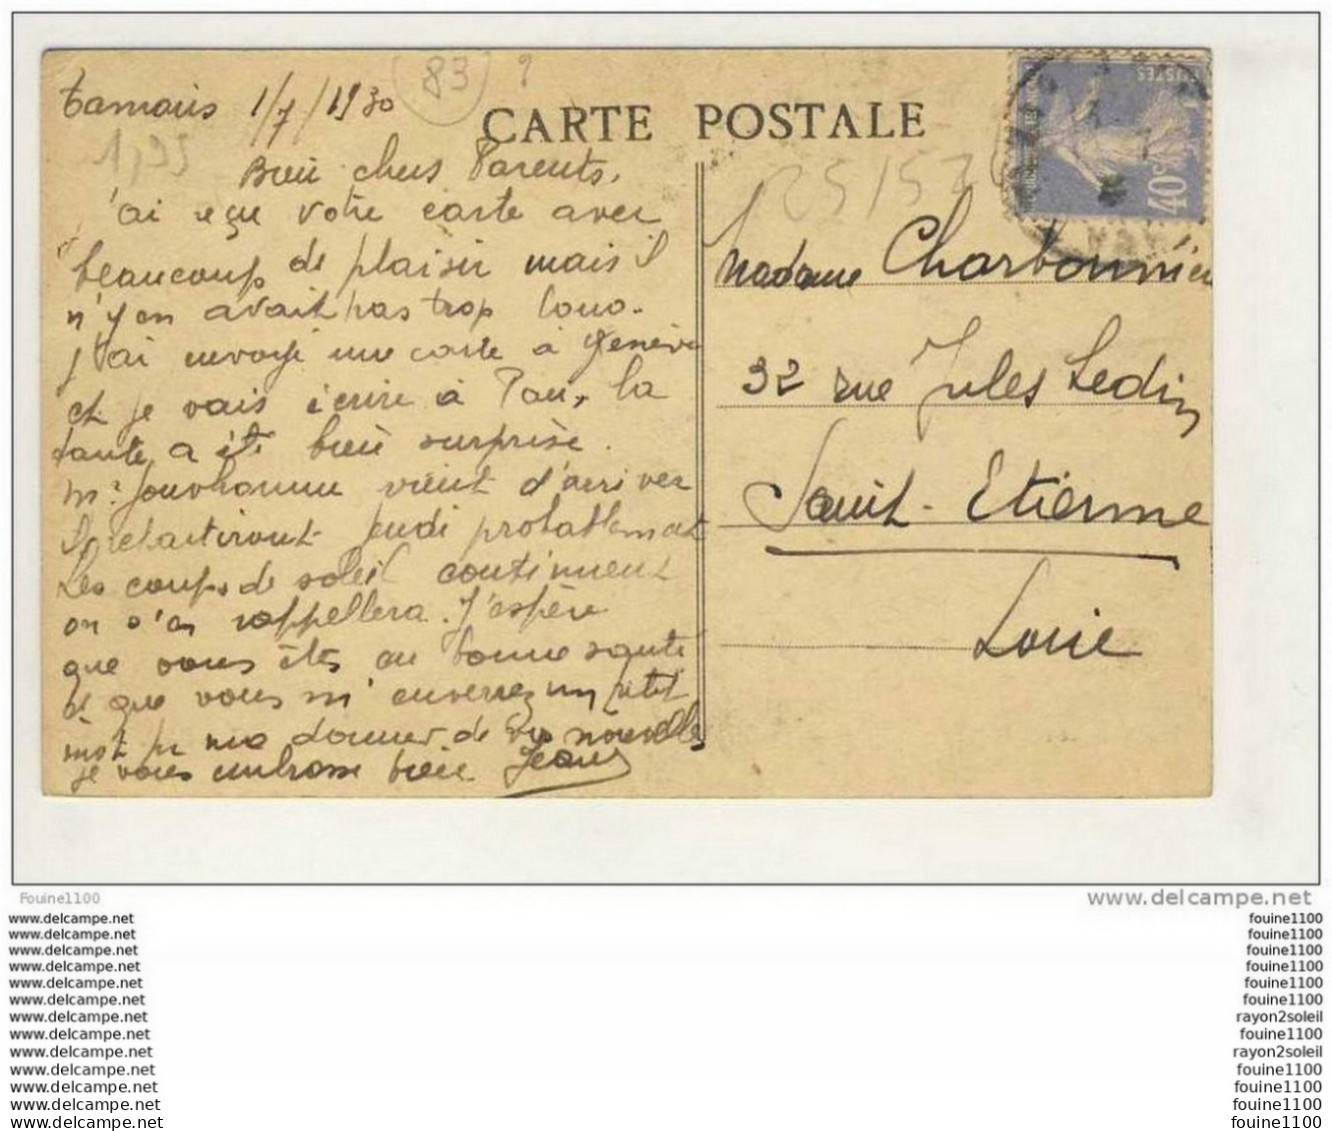 Tamaris 1/7/1930
83
?
CARTE POSTALE
1,95
Bien chers Parents,
j'ai reçu votre carte avec
beaucoup de plaisir mais il
n'y en avait pas trop long.
j'ai envoyé une carte à Genève
et je vais écrire à Pau, la
tante a été bien surprise.
Mr Jouvhomme vient d'arriver
Ils repartiront jeudi probablement
Les coups de soleil continuent
on s'en rappellera. J'espère
que vous êtes en bonne santé
et que vous m'enverrez un petit
mot pr me donner de vos nouvelles
je vous embrasse bien Jeanne
40c
Madame Charbonnier
32 rue Jules Ledin
Saint-Etienne
Loire
Fouine1100
www.delcampe.net
www.delcampe.net
fouine1100
www.delcampe.net
fouine1100
www.delcampe.net
fouine1100
www.delcampe.net
fouine1100
www.delcampe.net
fouine1100
www.delcampe.net
fouine1100
www.delcampe.net
rayon2soleil
www.delcampe.net
fouine1100
www.delcampe.net
rayon2soleil
www.delcampe.net
fouine1100
www.delcampe.net
fouine1100
www.delcampe.net
fouine1100
www.delcampe.net
fouine1100